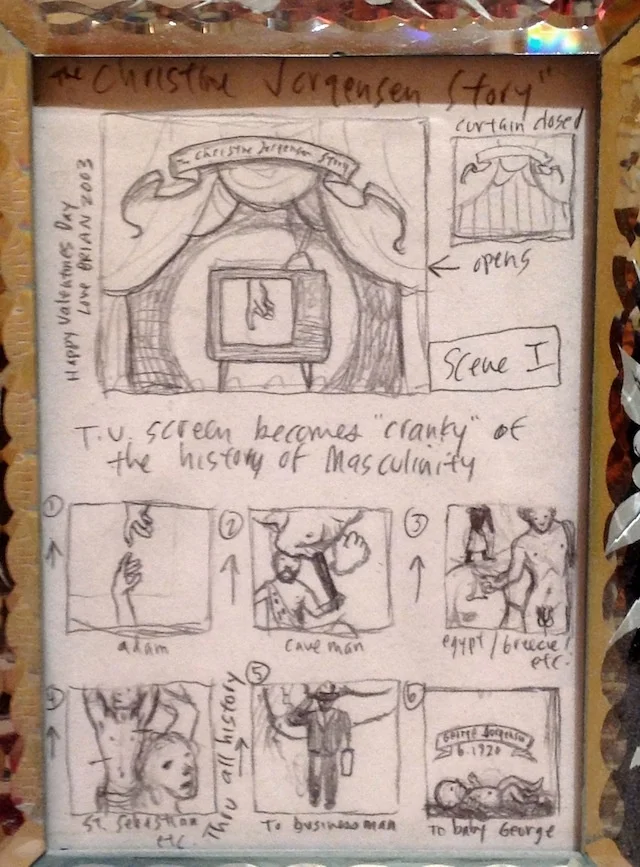 The "Christine Jorgensen Story"
Happy Valentines Day
Love BRIAN 2003
The Christine Jorgensen Story
curtain closed
← opens
Scene I
T.V. screen becomes "cranky" of
the history of Masculinity
① ↑
adam
② ↑
cave man
③ ↑
egypt / Greece /
etc.
4 ↑
St. Sebastian
etc.
Thru all history →
⑤
To businessman
⑥
George Jorgensen
b. 1926
To baby George